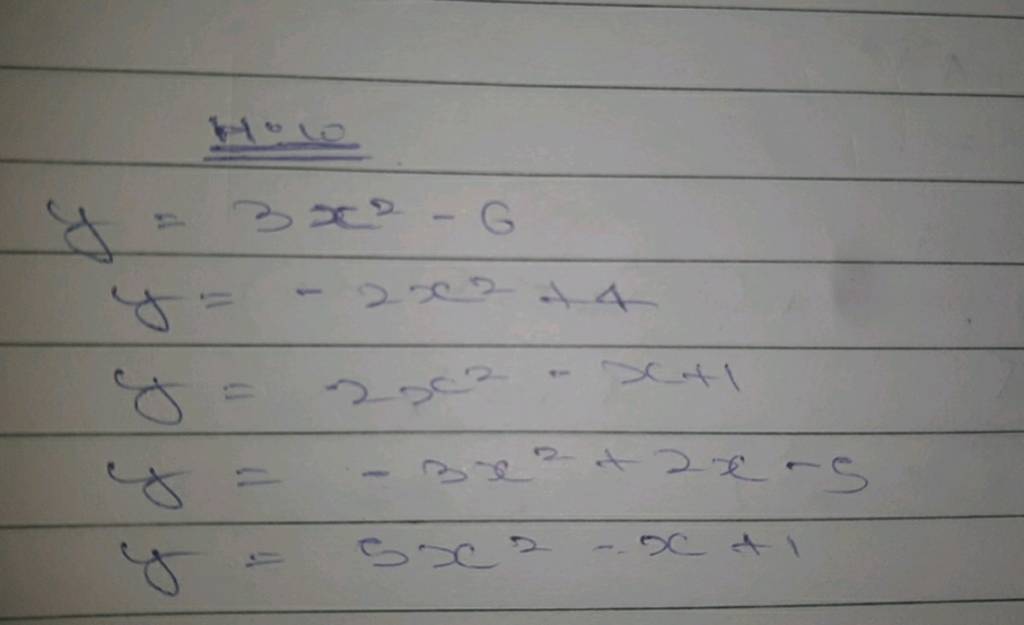 H.W
y = 3x² - 6
y = - 2x² + 4
y = 2x² - x + 1
y = - 3x² + 2x - 5
y = 5x² - x + 1